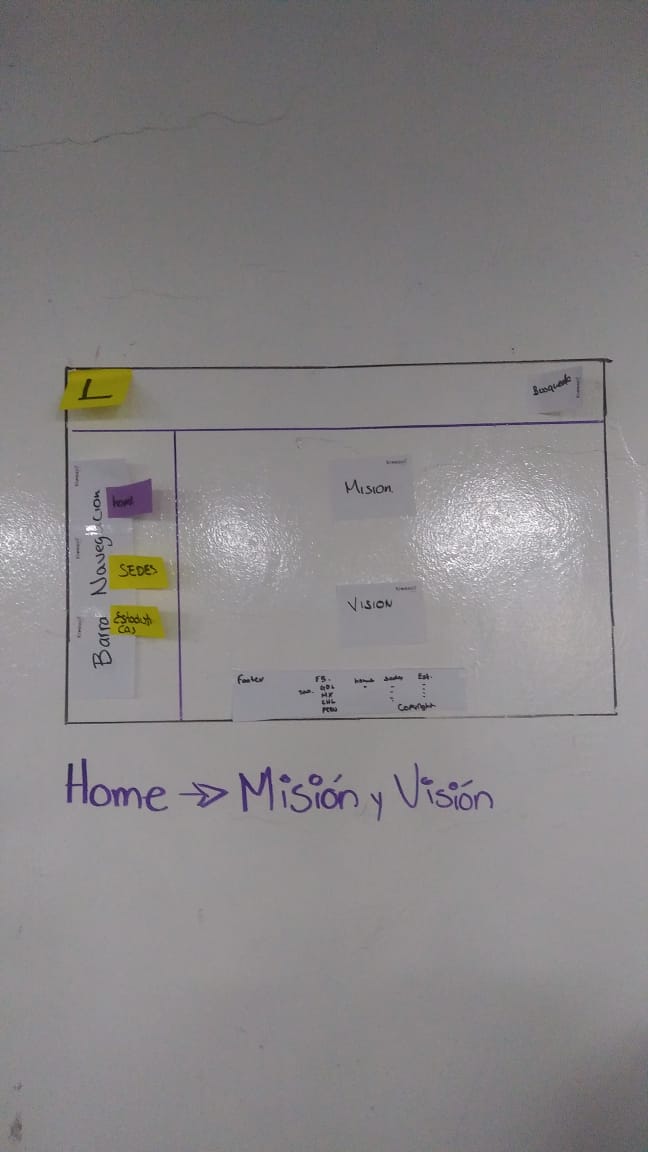 L
Busqueda
Barra Navegacion
home
SEDES
Estadisti
cas
MISION.
VISION
Footer
FB.
GDL
MX
CHL
PERU
home
Sedes
Est.
Copyright
Home → Misión y Visión